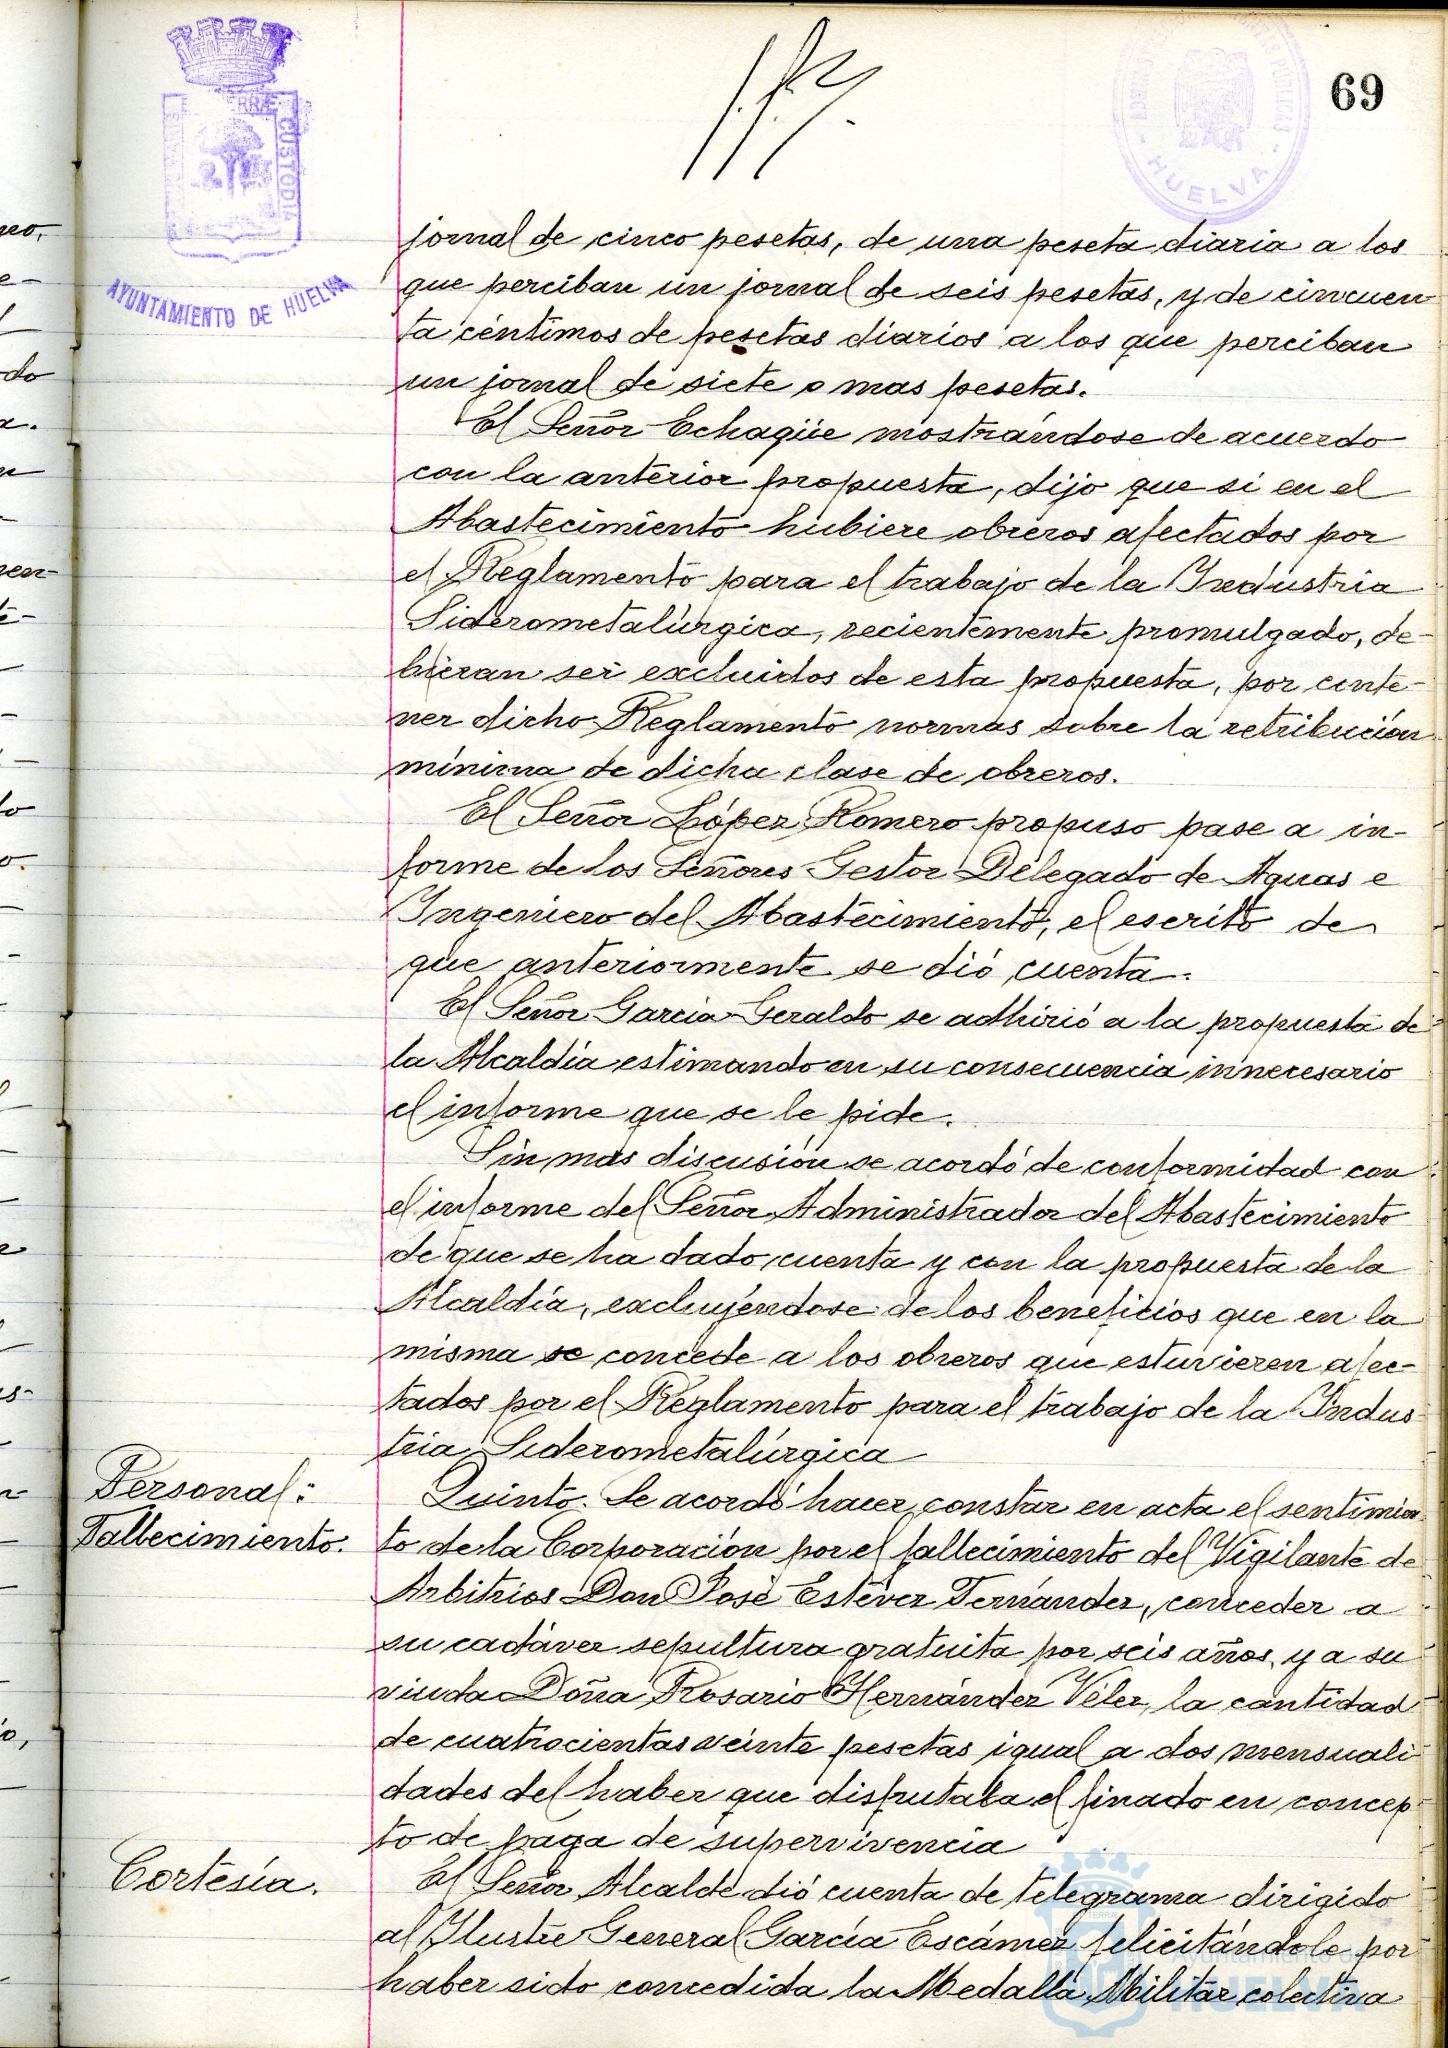 69
CUSTODIA
AYUNTAMIENTO DE HUELVA
HUELVA
jornal de cinco pesetas, de una peseta diaria a los
que perciban un jornal de seis pesetas, y de cincuen
ta céntimos de pesetas diarios a los que perciban
un jornal de siete o mas pesetas.
El Señor Echagüe mostrándose de acuerdo
con la anterior propuesta, dijo que si en el
Abastecimiento hubiere obreros afectados por
el Reglamento para el trabajo de la Industria
Siderometalúrgica, recientemente promulgado, de-
bieran ser excluidos de esta propuesta, por conte-
ner dicho Reglamento normas sobre la retribución
mínima de dicha clase de obreros.
El Señor López Romero propuso pase a in-
forme de los Señores Gestor Delegado de Aguas e
Ingeniero del Abastecimiento, el escrito de
que anteriormente se dió cuenta.
El Señor Garcia Geraldo se adhirió a la propuesta de
la Alcaldía estimando en su consecuencia innecesario
el informe que se le pide.
Sin mas discusión se acordó de conformidad con
el informe del Señor Administrador del Abastecimiento
de que se ha dado cuenta y con la propuesta de la
Alcaldía, excluyéndose de los beneficios que en la
misma se concede a los obreros que estuvieren afec-
tados por el Reglamento para el trabajo de la Indus
tria Siderometalúrgica
Personal:
Fallecimiento.
Quinto. Se acordó hacer constar en acta el sentimien
to de la Corporación por el fallecimiento del Vigilante de
Arbitrios Don José Estévez Fernández, conceder a
su cadáver sepultura gratuita por seis años, y a su
viuda Doña Rosario Hernández Vélez, la cantidad
de cuatrocientas veinte pesetas igual a dos mensuali
dades del haber que disfrutaba el finado en concep
to de paga de supervivencia
Cortesía.
El Señor Alcalde dió cuenta de telegrama dirigido
al Ilustre General García Escámez felicitándole por
haber sido concedida la Medalla Militar colectiva
Ayuntamiento de
HUELVA